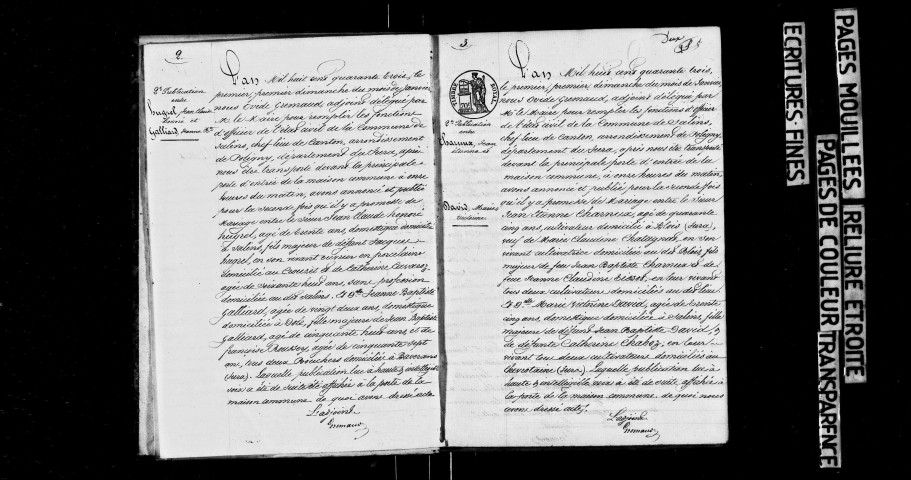 2.
2e Publication
entre
huguet, Jean Claude
honoré et
Galliard, Jeanne Bte
L'an Mil huit cent quarante trois, le
premier, premier dimanche du mois de Janvier
nous Ovide Grimaud, adjoint délégué par
M. le Maire pour remplir les fonctions
d'officier de l'état civil de la Commune de
Salins, chef lieu de Canton, arrondissement
de Poligny, département du Jura, après
nous être transporté devant la principale
porte d'entrée de la maison commune à onze
heures du matin, avons annoncé et publié
pour la seconde fois qu'il y a promesse de
mariage entre le Sieur Jean Claude honoré
huguet, agé de trente ans, domestique domicilié
à Salins, fils majeur de défunt Jacques
huguet, en son vivant ouvrier en porcelaine
domicilié au et de Catherine
agée de soixante huit ans, sans profession
domiciliée au dit Salins. Et Dlle Jeanne Baptiste
Galliard, agée de vingt deux ans, domestique
domiciliée à Dole, fille majeure de Jean Baptiste
Galliard, agé de cinquante huit ans et de
françoise Roussey, agée de cinquante sept
ans, tous deux domiciliés à
(Jura). Laquelle publication lue à haute & intelligible
voix a été de suite affichée à la porte de la
maison commune de quoi avons dressé acte
L'adjoint
Grimaud
3.
Deux
TIMBRE ROYAL
2e Publication
entre
Charnux, Jean
étienne et
David, Marie
victoire
L'an Mil huit cent quarante trois,
le premier, premier dimanche du mois de Janvier
nous Ovide Grimaud, adjoint délégué par
M. le Maire pour remplir les fonctions d'officier
de l'état civil de la Commune de Salins,
chef lieu de Canton, arrondissement de Poligny,
département du Jura, après nous être transporté
devant la principale porte d'entrée de la
maison commune, à onze heures du matin,
avons annoncé et publié pour la seconde fois
qu'il y a promesse de Mariage entre le Sieur
Jean Etienne Charnux, agé de quarante
cinq ans, cultivateur domicilié à Blois (Jura),
veuf de Marie Claudine Chategnon, en son
vivant cultivatrice domiciliée au dit Blois, fils
majeur de feu Jean Baptiste Charnux & de
feue Jeanne Claudine en leur vivant
tous deux cultivateurs domiciliés au dit lieu.
Et Dlle Marie victoire David, agée de trente
cinq ans, domestique domiciliée à Salins, fille
majeure de défunt Jean Baptiste David &
de défunte Catherine Chaboz, en leur
vivant tous deux cultivateurs domiciliés au
(Jura). Laquelle publication lue à
haute & intelligible voix a été de suite affichée à
la porte de la maison commune de quoi nous
avons dressé acte.
L'adjoint
Grimaud
PAGES MOUILLEES RELIURE ETROITE
PAGES DE COULEUR TRANSPARENCE
ECRITURES FINES